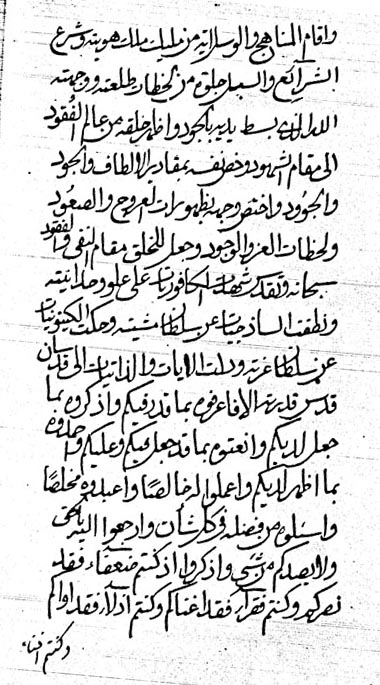 واقام المناهج والوسلابة من مليك ملك هويته وشرع
الشرائع والسبل خلقه من لحظات طلعته ووجهته
الله الذي بسط يديه بالجود واظهر خلقه من عالم الفقود
الى مقام الشهود وخص نفسه بمقادير الالطاف والجود
والجوود واختص وجهه بظهورات العروج والصعود
ولحظات العز والوجود وجعل للخلق مقام النفى والفقود
سبحانه وتقدس شهدت الكافوريات على علو وحدانيته
ونطقت الساذجيات عن سلطان مشيته وحكت الكينونيات
عن سلطان عزته ودلت الايات والذاتيات الى قدسان
قدس قدرته الا فاعرفوه بما قدر فيكم واذكروه بما
جعل لديكم وانعتوه بما قد جعل فيكم وعليكم واحمدوه
بما اظهر لديكم واعملوا له خالصا واعبدوه مخلصا
واسئلوه من فضله فى كل شأن وارجعوا اليه
ولا يصدكم من شئ واذكروا اذ كنتم ضعفاء فقد
نصركم وكنتم فقراء فقد اغناكم وكنتم اذلاء فقد اواكم
وكنتم